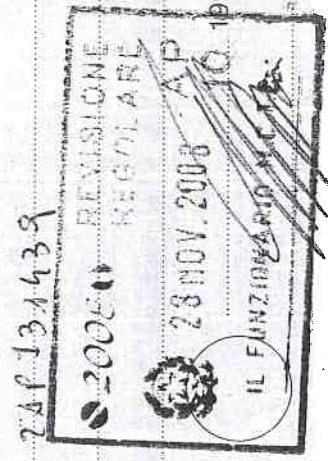 2AP131439
2008 REVISIONE
REGOLARE
AP
28 NOV. 2008 10 19
IL FUNZIONARIO M.C.T.C.